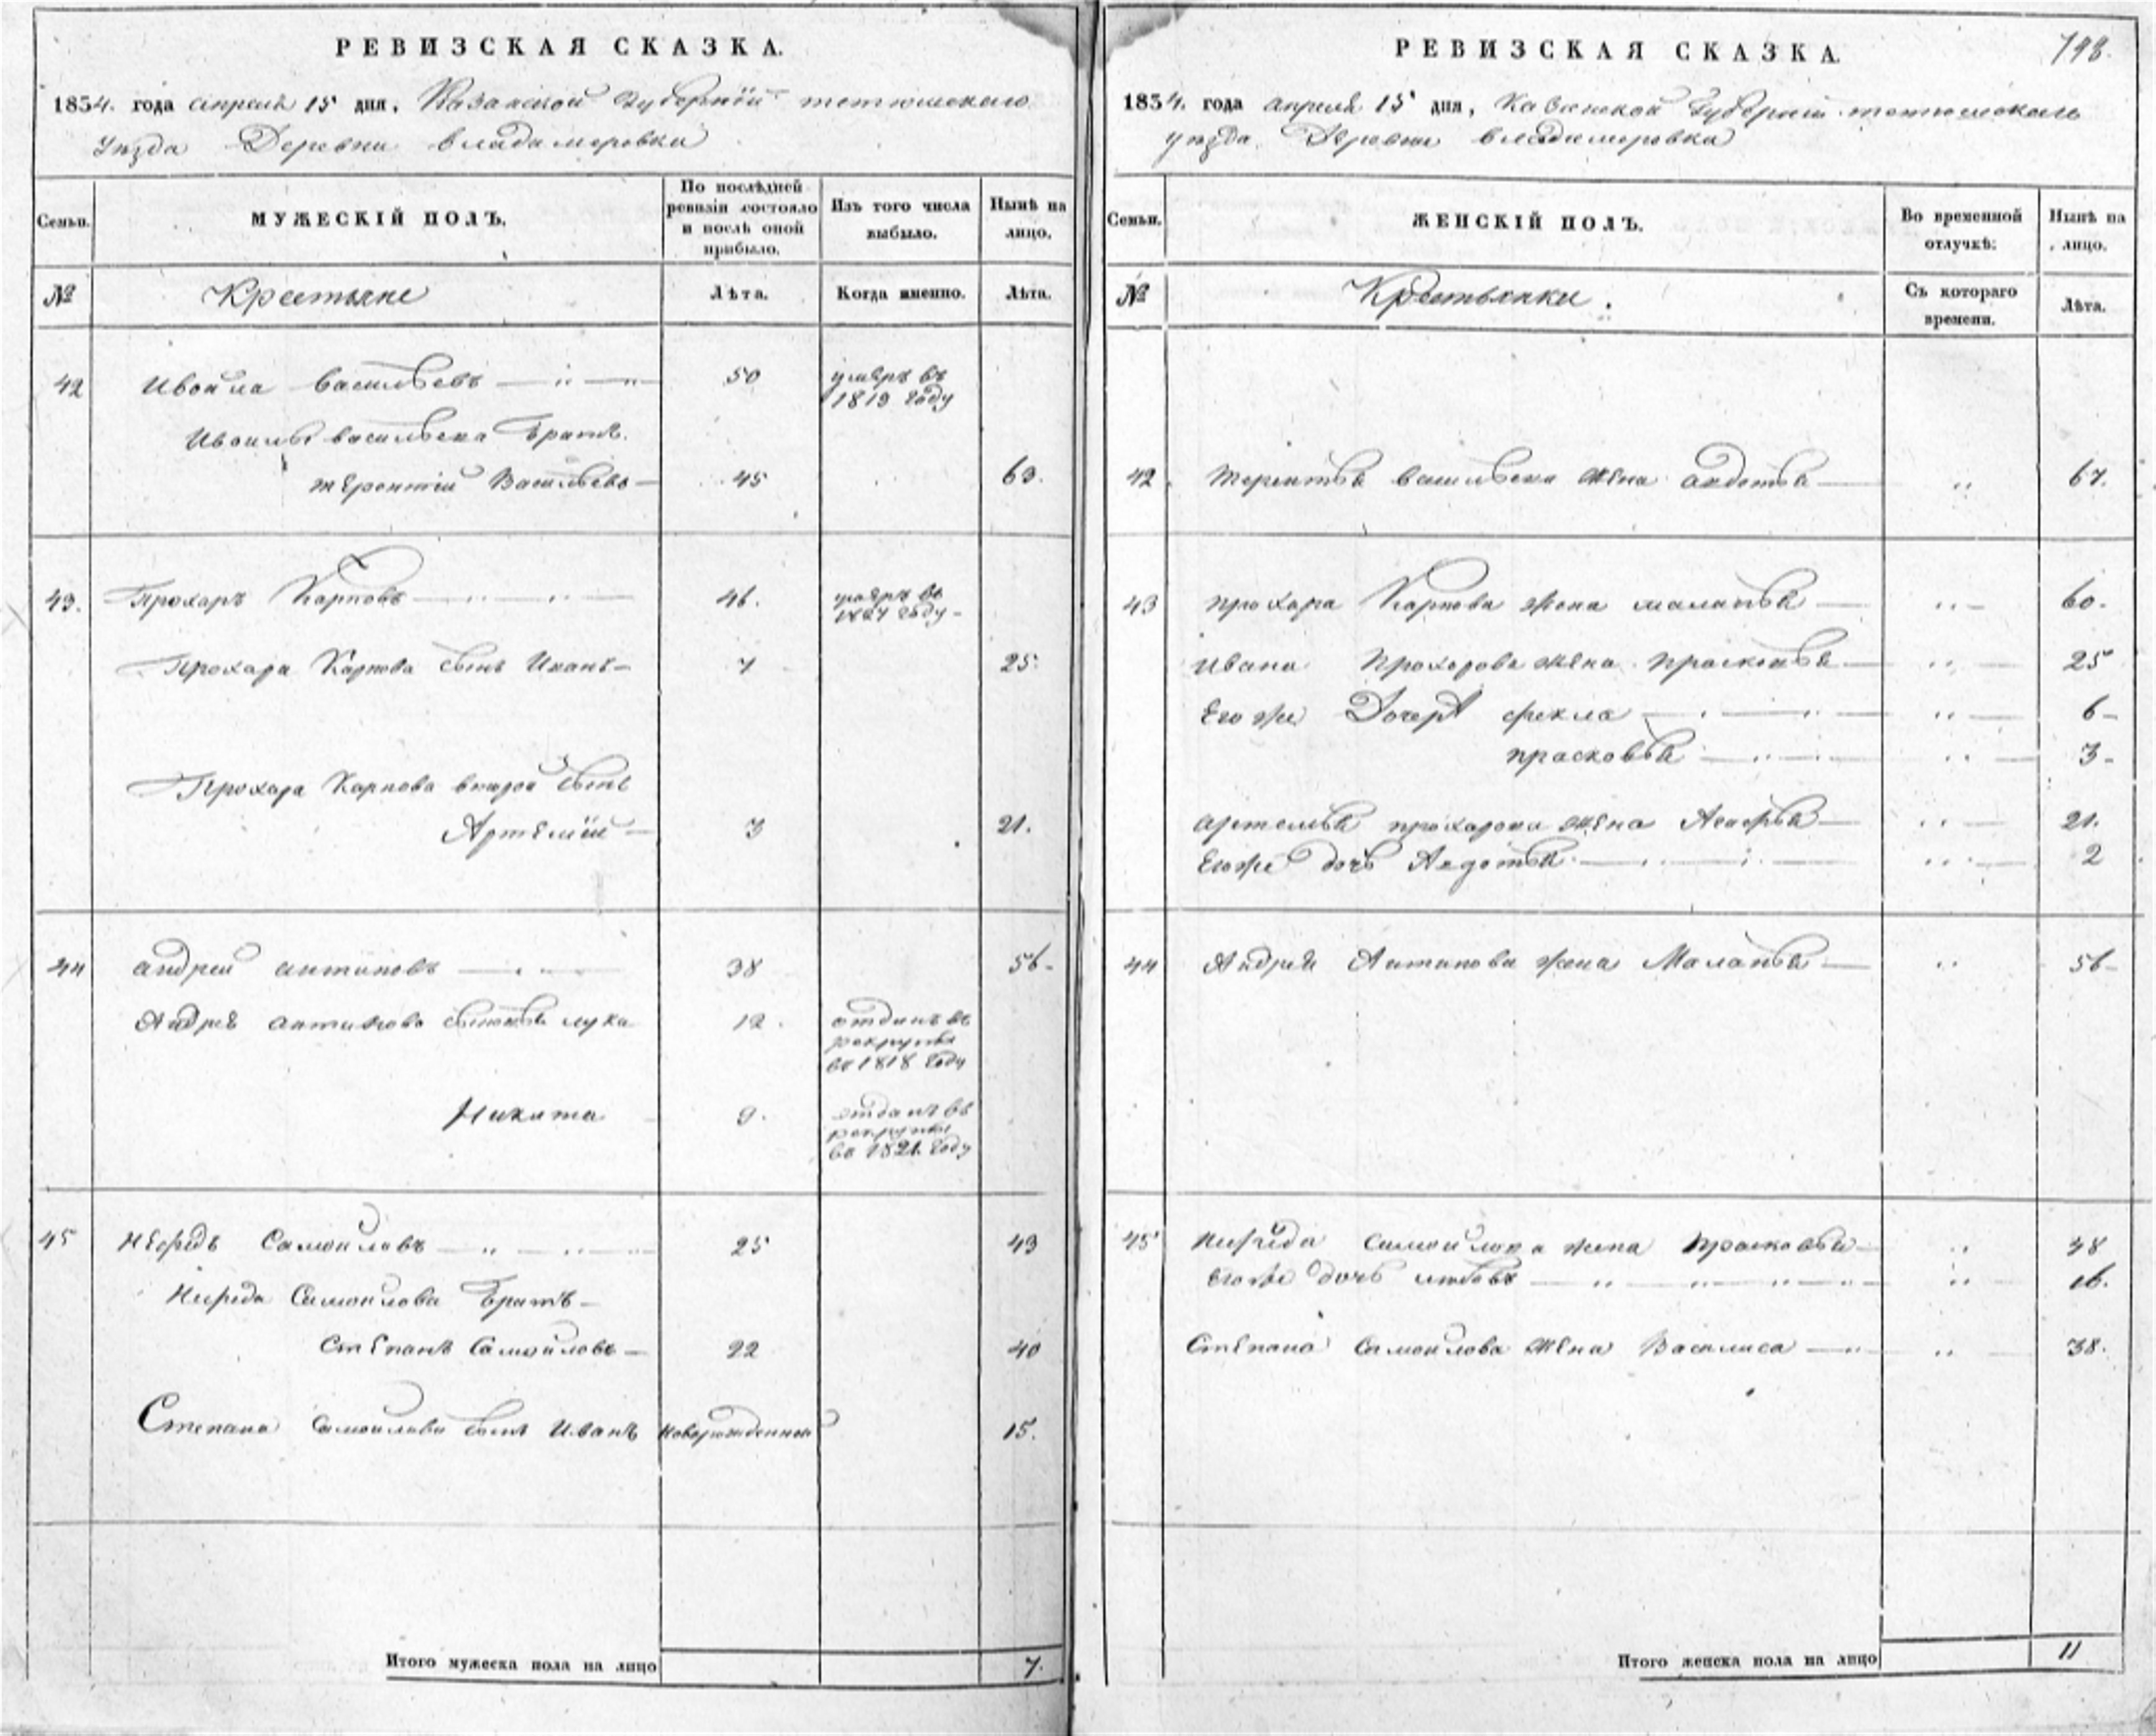 РЕВИЗСКАЯ СКАЗКА.
1834. года апреля 15 дня, Казанской губернїи тетюшскаго
уезда Деревни владимеровки
Семьи.
МУЖЕСКІЙ ПОЛЪ.
По послѣдней ревизіи состояло и послѣ оной прибыло.
Изъ того числа выбыло.
Нынѣ на лицо.
№
Крестьяне
Лѣта.
Когда именно.
Лѣта.
42 Ивойла васильевъ 50 умеръ въ
1819 году
Ивоилы васильева братъ
терентїй Васильевъ 45 63.
43. Прохаръ Карповъ 46. умеръ въ
1827 году
Прохара Карпова сынъ Иванъ 7 25.
Прохара Карпова второй сынъ
Артемїй 3 21.
44 андрей антиповъ 38 56
Андрея антипова сыновья лука 12. отданъ въ
рекруты
въ 1818 году
Никита 9. отданъ въ
рекруты
въ 1821 году
45 Нефедъ Самойловъ 25 43
Нефеда Самойлова братъ
Степанъ Самойловъ 22 40
Степана Самойлова сынъ Иванъ новорожденной 15.
Итого мужеска пола на лицо 7.
РЕВИЗСКАЯ СКАЗКА.
798.
1834. года апреля 15 дня, Казанской губернїи тетюшскаго
уезда Деревни владимеровки
Семьи.
ЖЕНСКІЙ ПОЛЪ.
Во временной отлучкѣ:
Нынѣ на лицо.
№
Крестьянки.
Съ котораго времени.
Лѣта.
42 терентья васильева жена авдотья 67.
43 прохара Карпова жена маланья 60.
Ивана Прохорова жена прасковья 25
Его же Дочери фекла 6
прасковья 3
артемья прохарова жена 21.
Егоже дочь Авдотья 2
44 Андрея Антипова жена Маланья 56
45 Нефеда самойлова жена прасковья 48
Егоже дочь любовь 16.
Степана Самойлова жена Василиса 38.
Итого женска пола на лицо 11